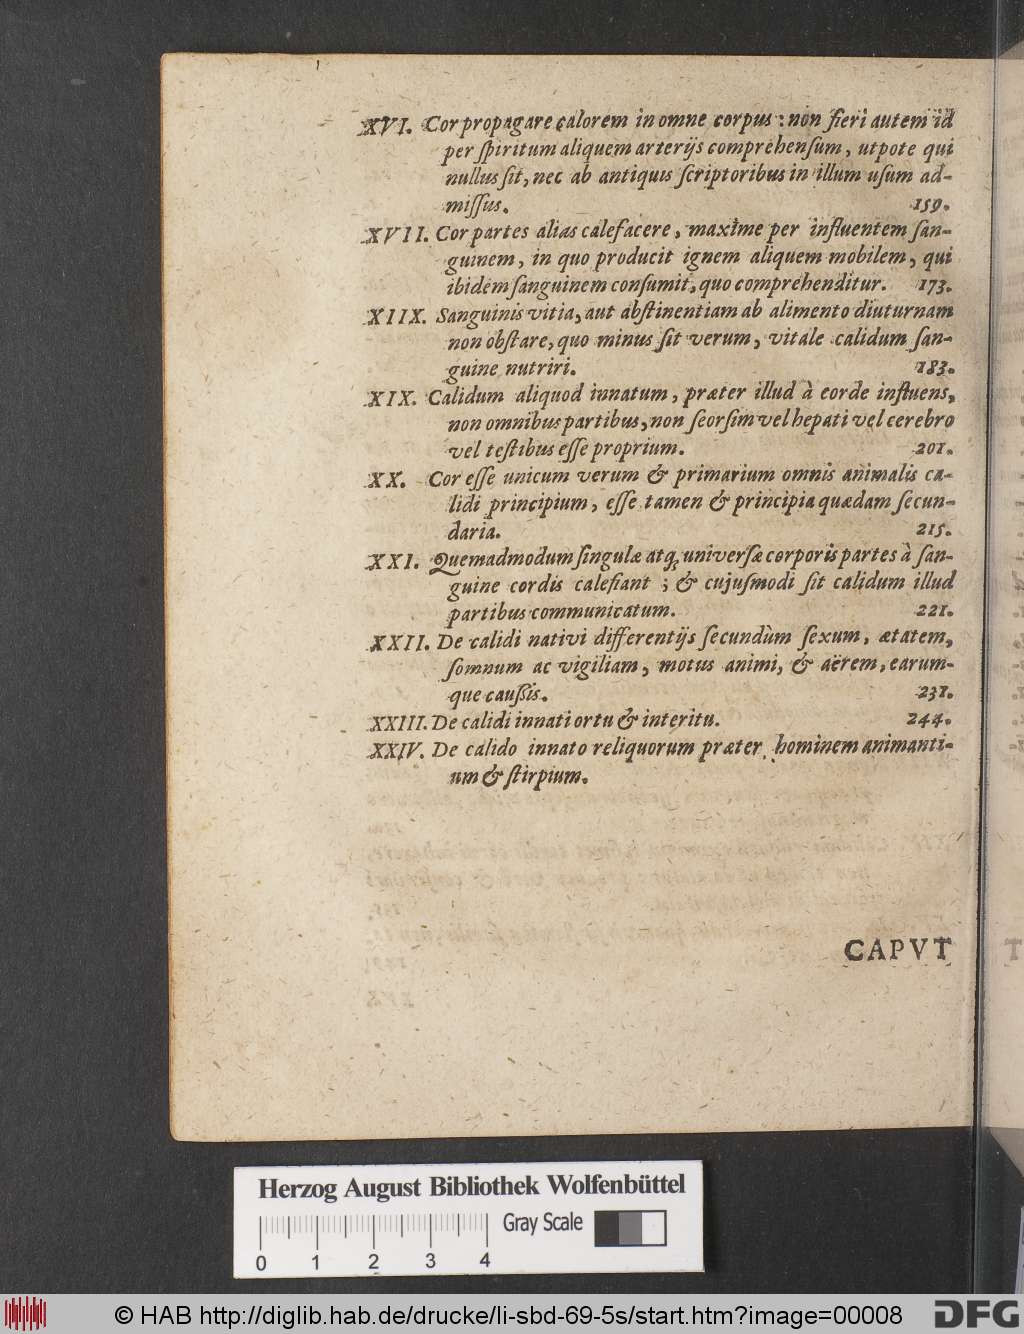 XVI. Cor propagare calorem in omne corpus: non fieri autem id
per ſpiritum aliquem arterijs comprehenſum, utpote qui
nullus ſit, nec ab antiquis ſcriptoribus in illum uſum ad-
miſſus. 159.
XVII. Cor partes alias calefacere, maxime per influentem ſan-
guinem, in quo producit ignem aliquem mobilem, qui
ibidem ſanguinem conſumit, quo comprehenditur. 173.
XIIX. Sanguinis vitia, aut abſtinentiam ab alimento diuturnam
non obſtare, quo minus ſit verum, vitale calidum ſan-
guine nutriri. 183.
XIX. Calidum aliquod innatum, præter illud à corde influens,
non omnibus partibus, non ſeorſim vel hepati vel cerebro
vel teſtibus eſſe proprium. 201.
XX. Cor eſſe unicum verum & primarium omnis animalis ca-
lidi principium, eſſe tamen & principia quædam ſecun-
daria. 215.
XXI. Quemadmodum ſingulæ atq; univerſæ corporis partes à ſan-
guine cordis calefiant; & cujuſmodi ſit calidum illud
partibus communicatum. 221.
XXII. De calidi nativi differentijs ſecundùm ſexum, ætatem,
ſomnum ac vigiliam, motus animi, & aërem, earum-
que cauſsis. 231.
XXIII. De calidi innati ortu & interitu. 244.
XXIV. De calido innato reliquorum præter hominem animanti-
um & ſtirpium.
CAPVT
T
Herzog August Bibliothek Wolfenbüttel
Gray Scale
0 1 2 3 4
© HAB http://diglib.hab.de/drucke/li-sbd-69-5s/start.htm?image=00008
DFG